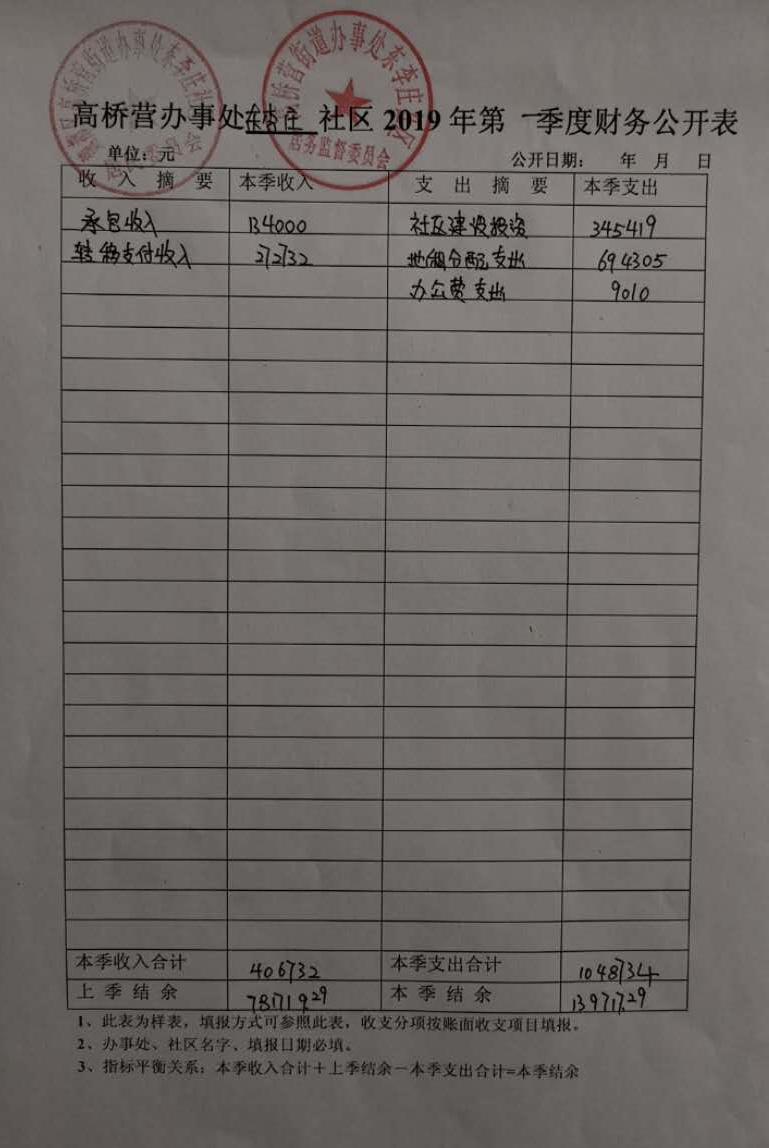 高桥营街道办事处东李庄社
桥营街道办事处东李庄社区
居务监督委员会
高桥营办事处东李庄社区 2019 年第一季度财务公开表
单位：元 公开日期： 年 月 日
收 入 摘 要 本季收入 支 出 摘 要 本季支出
承包收入 134000 社区建设投资 345419
转移支付收入 272732 地租分配支出 694305
办公费支出 9010
本季收入合计 406732 本季支出合计 1048734
上 季 结 余 781719.29 本 季 结 余 139717.29
1、此表为样表，填报方式可参照此表，收支分项按账面收支项目填报。
2、办事处、社区名字、填报日期必填。
3、指标平衡关系：本季收入合计＋上季结余－本季支出合计=本季结余